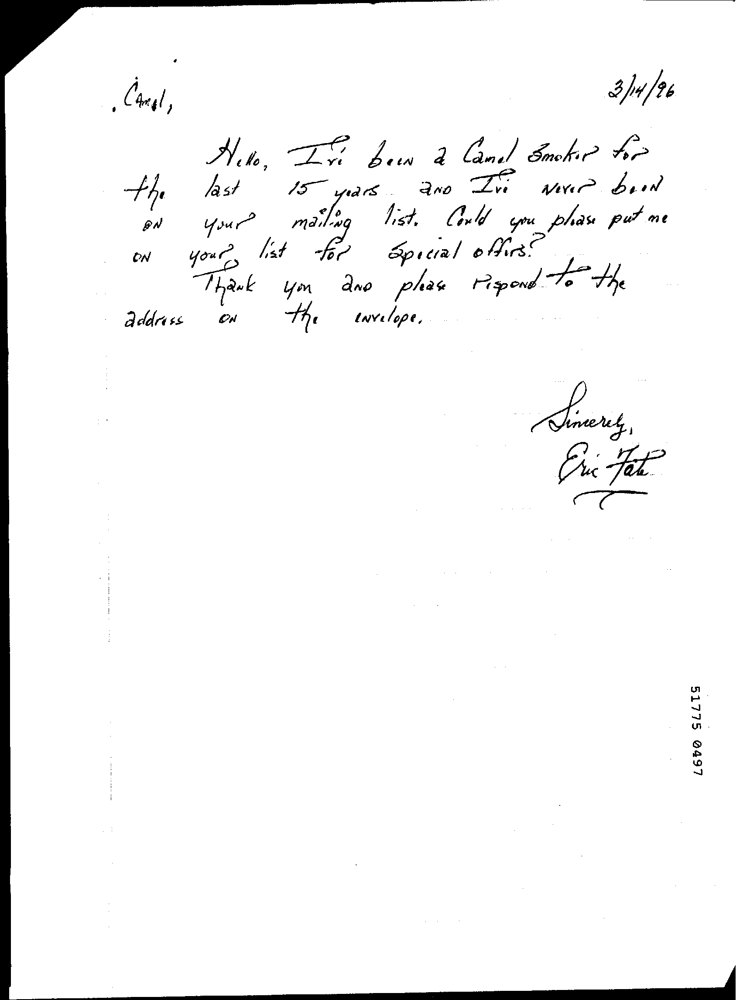 3/14/96
Camel,
Hello, I've been a Camel Smoker for
the last 15 years and I've never been
on your mailing list. Could you please put me
on your list for special offers?
Thank you and please respond to the
address on the envelope.
Sincerely,
Eric Tate
51775 0497